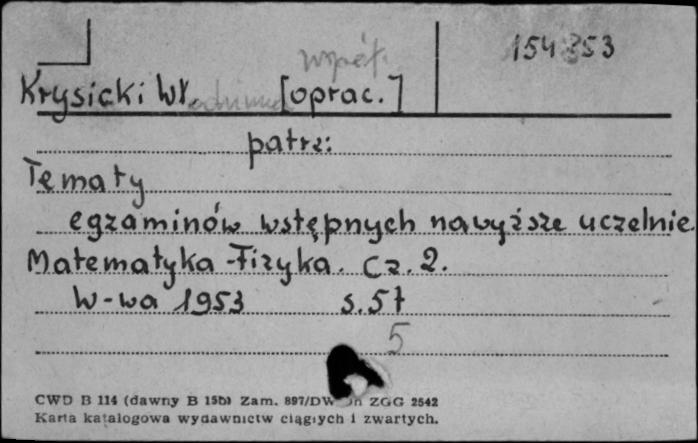 współ.
154353
Krysicki Włodzimierz [oprac.]
patrz:
Tematy
egzaminów wstępnych na wyższe uczelnie.
Matematyka-Fizyka. Cz. 2.
W-wa 1953 s. 57
5
CWD B 114 (dawny B 15b) Zam. 897/DW ZGG 2542
Karta katalogowa wydawnictw ciągłych i zwartych.